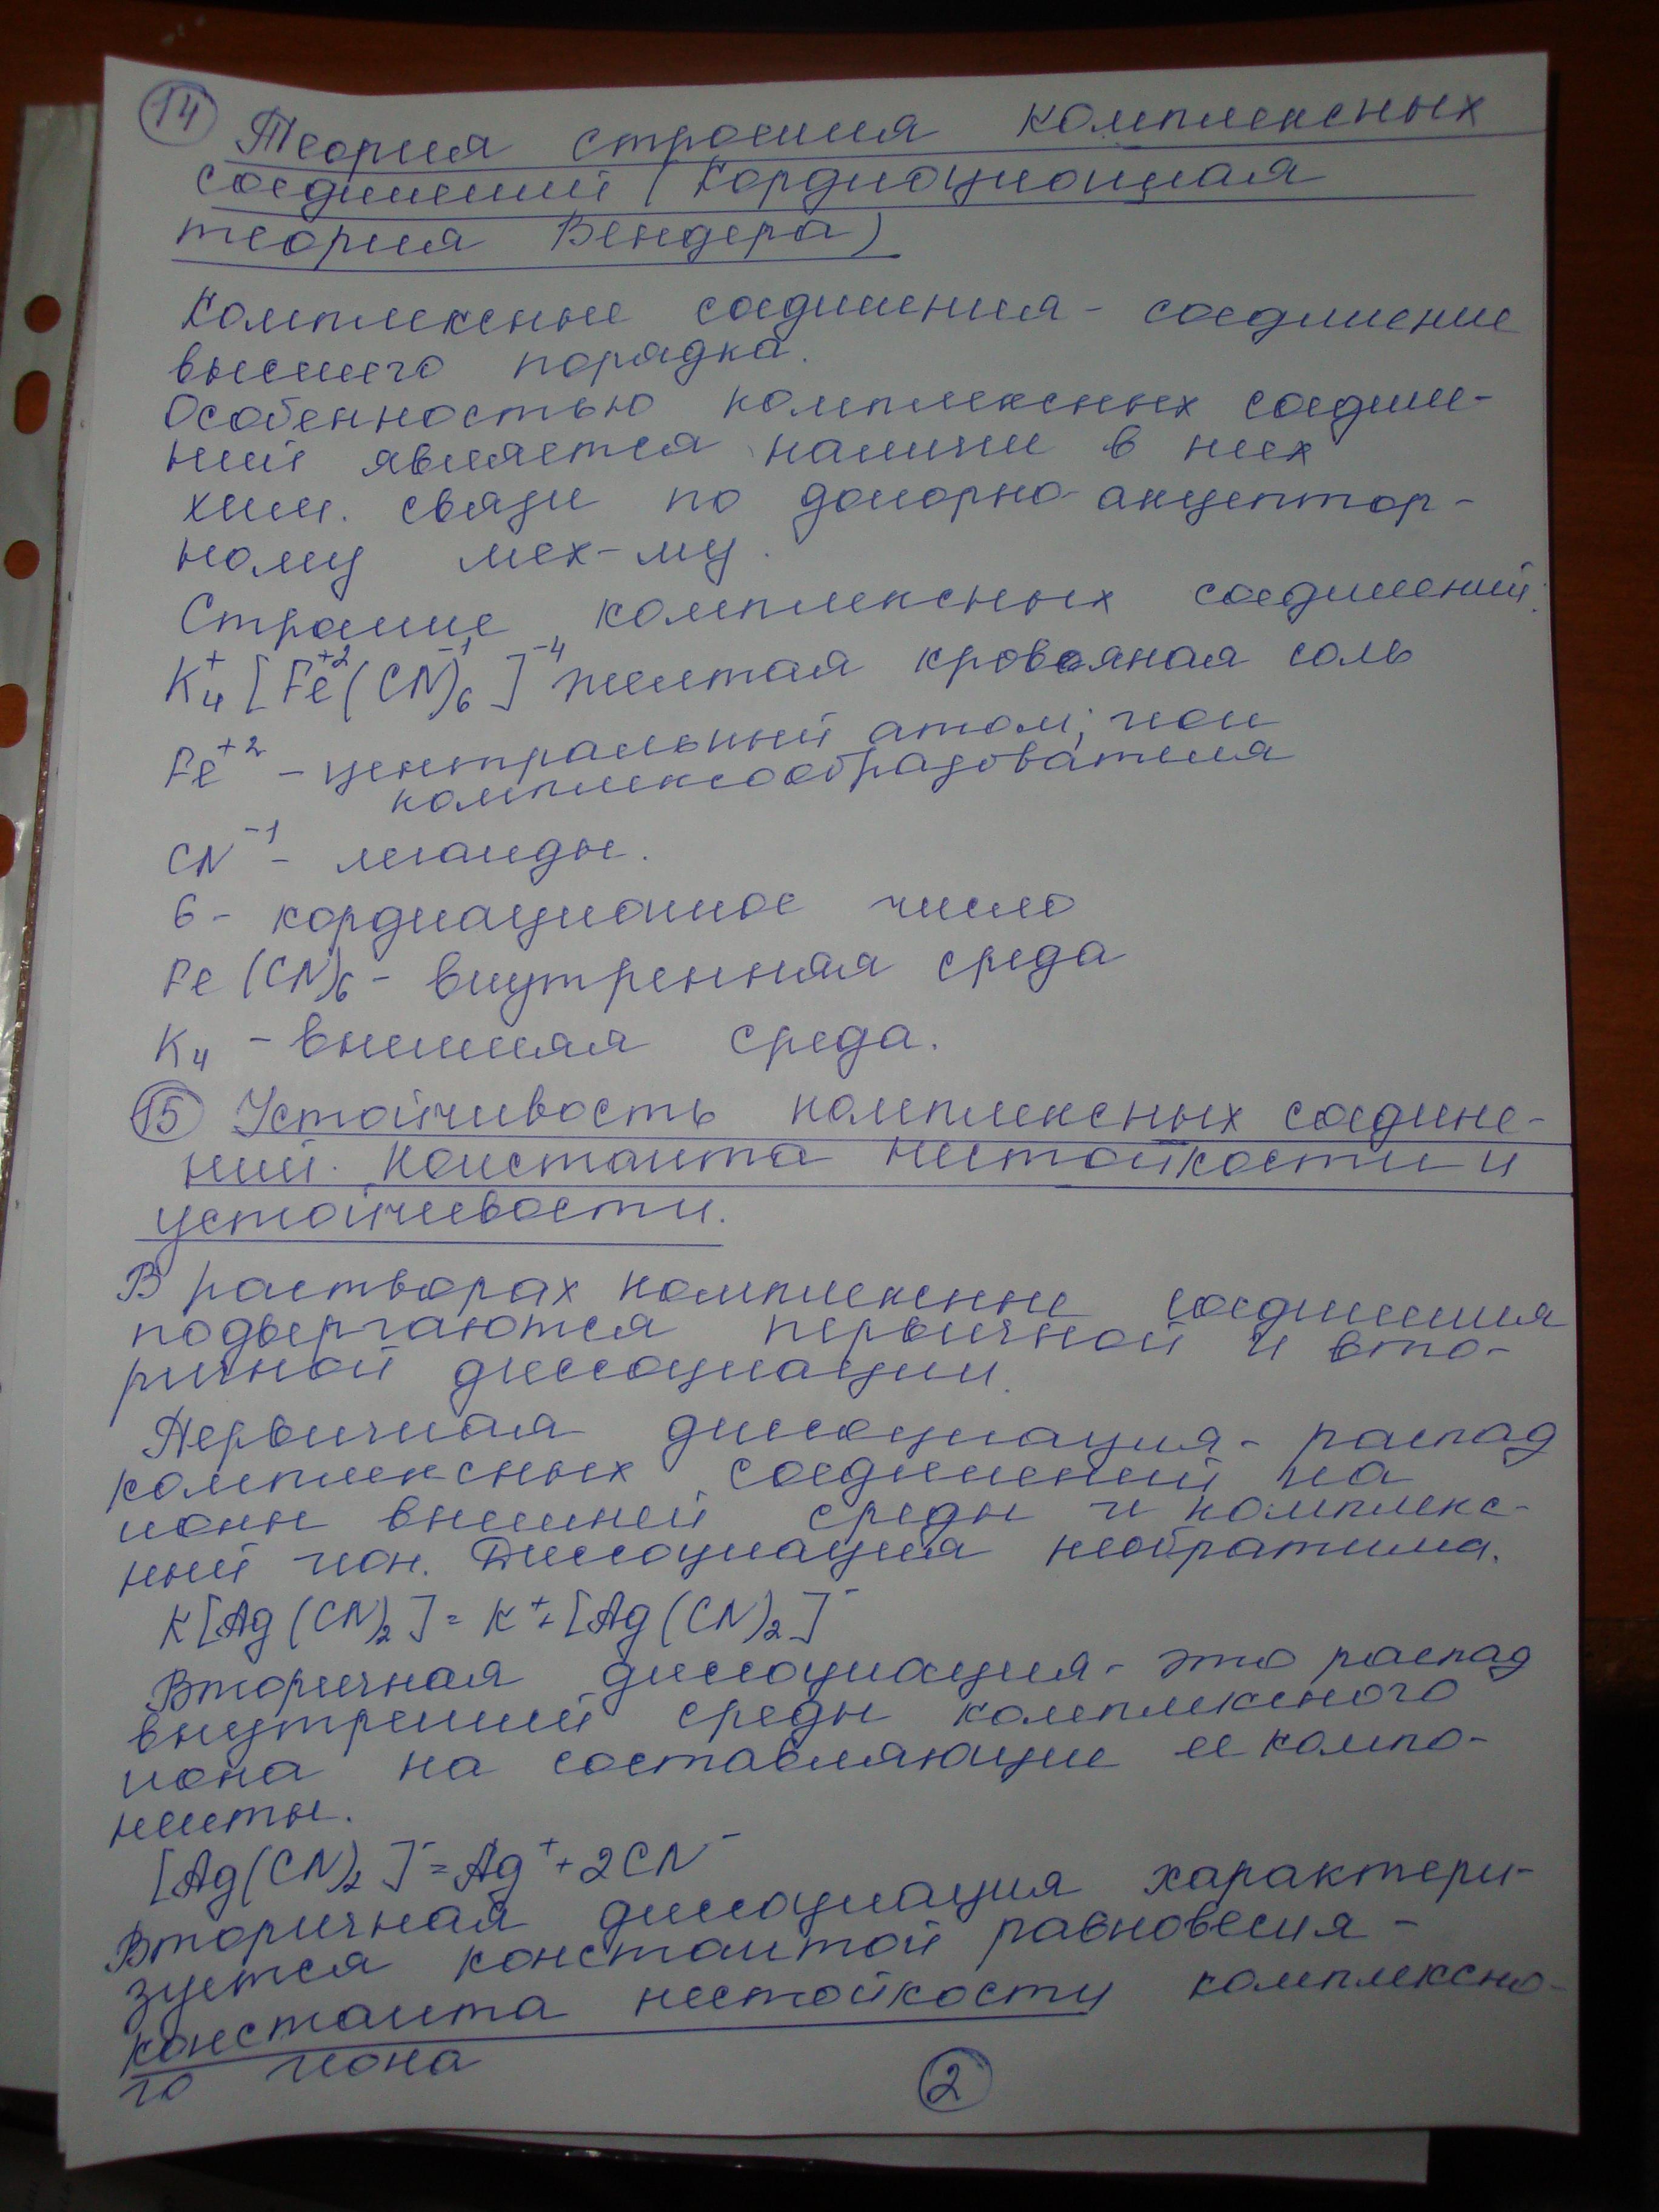 14 Теория строения комплексных
соединений (Кордиационная
теория Вендера)
Комплексные соединения - соединение
высшего порядка.
Особенностью комплексных соедине-
ний является наличие в них
хим. связи по донорно-акцептор-
ному мех-му.
Строение комплексных соединений:
K₄⁺[Fe⁺²(CN)₆⁻¹]⁻⁴ желтая кровяная соль
Fe⁺² - центральный атом; ион
комплексообразователя
CN⁻¹ - леганды.
6 - кордиационное число
Fe(CN)₆ - внутренняя среда
K₄ - внешняя среда.
15 Устойчивость комплексных соедине-
ний. Константа нестойкости и
устойчивости.
В растворах комплексные соединения
подвергаются первичной и вто-
ричной диссоциации.
Первичная диссоциация - распад
комплексных соединений на
ионы внешней среды и комплекс-
ный ион. Диссоциация необратима.
K[Ag(CN)₂] = K⁺ + [Ag(CN)₂]⁻
Вторичная диссоциация - это распад
внутренней среды комплексного
иона на составляющие ее компо-
ненты.
[Ag(CN)₂]⁻ = Ag⁺ + 2CN⁻
Вторичная диссоциация характери-
зуется константой равновесия -
константа нестойкости комплексно-
го иона
2